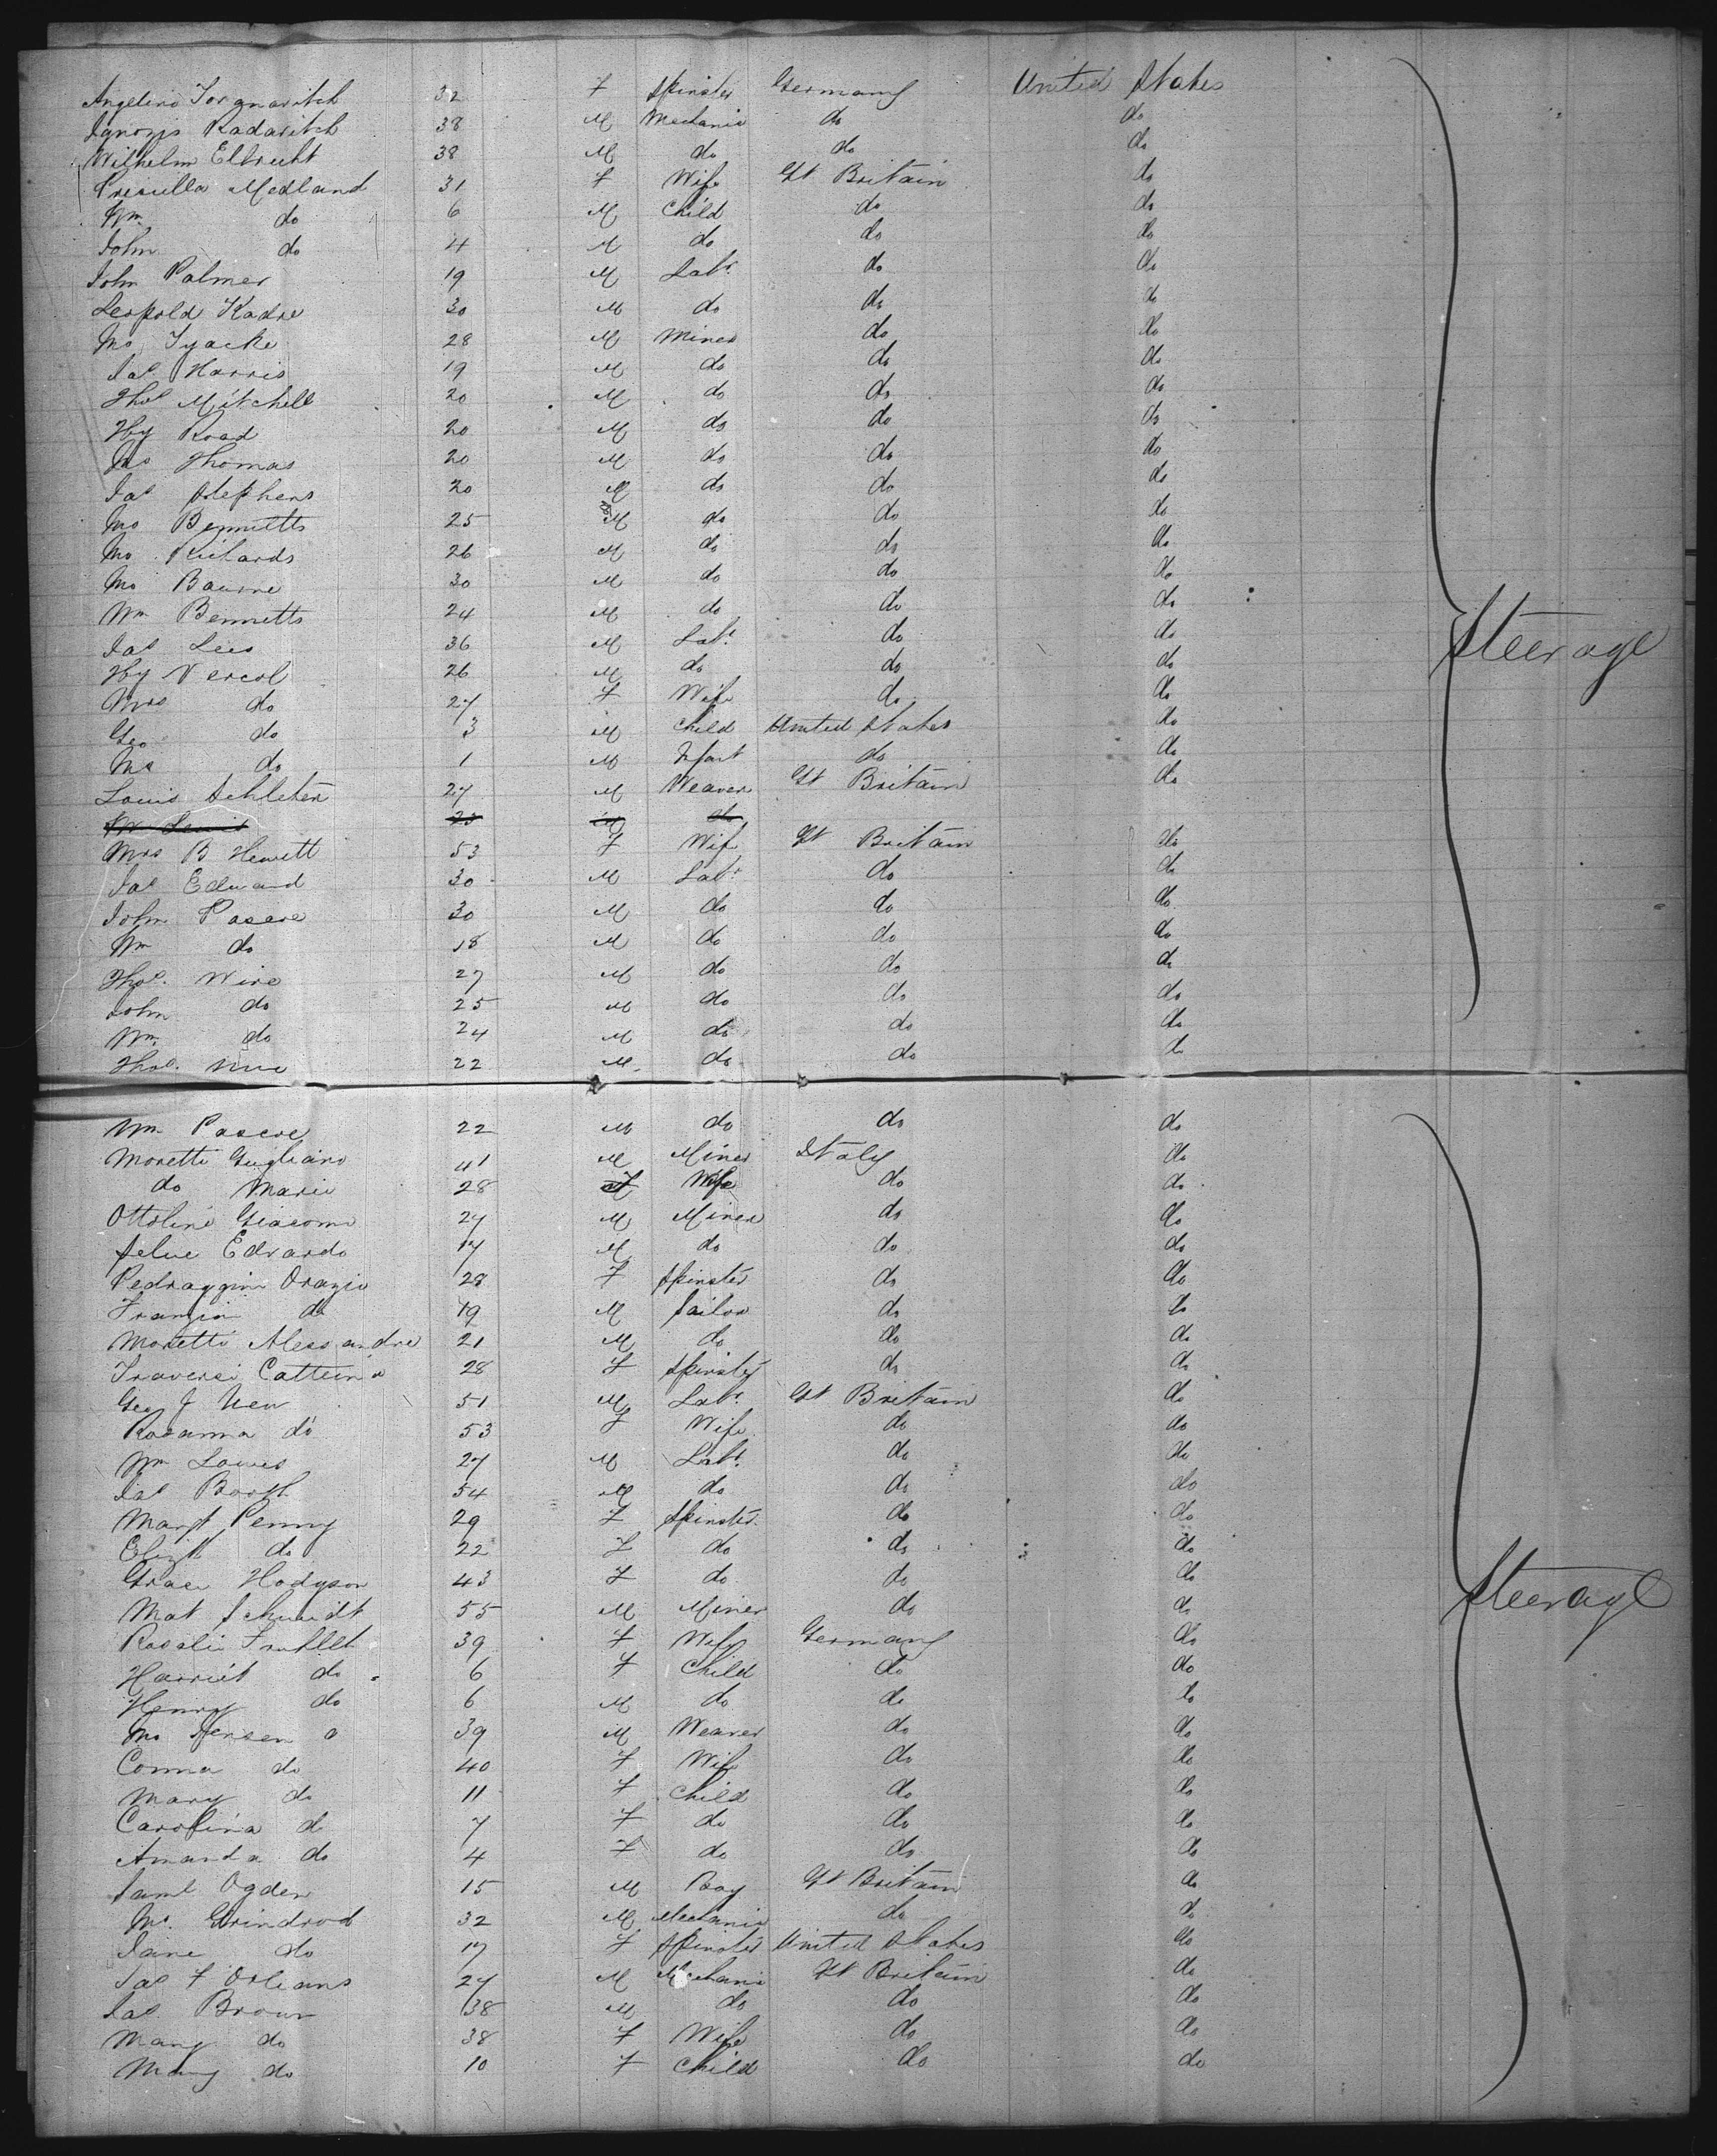 Angelino Torgnaritch 32 F Spinster Germany United States
Ignozis Radaritch 38 M Mechanic do do
Wilhelm Elbrecht 38 M do do do
Priscilla Medland 31 F Wife Gt Britain do
Wm do 6 M Child do do
John do 4 M do do do
John Palmer 19 M Labr do do
Leopold Kadre 30 M do do do
Jno Tyacke 28 M Miner do do
Jas Harris 19 M do do do
Thos Mitchell 20 M do do do
Hy Road 20 M do do do
Jas Thomas 20 M do do do
Jas Stephens 20 M do do do
Jno Bennetts 25 M do do do
Jno Richards 26 M do do do
Jno Bourne 30 M do do do
Wm Bennetts 24 M do do do
Jas Lees 36 M Labr do do Steerage
Hy Vercol 26 M do do do
Mrs do 27 F Wife do do
Geo do 3 M Child United States do
Jno do 1 M Infant do do
Louis Schleter 27 M Weaver Gt Britain do
Lewis 23 M do
Mrs B Hewett 53 F Wife Gt Britain do
Jas Edward 30 M Labr do do
John Pascoe 30 M do do do
Wm do 18 M do do do
Thos. Wire 27 M do do do
John do 25 M do do do
Wm. do 24 M do do do
Thos. 22 M do do do
Wm Pascoe 22 M do do do
Moretti Gugliano 41 M Miner Italy do
do Marie 28 F Wife do do
Ottolini Giacomo 27 M Miner do do
Selue Edvardo 17 M do do do
Pedraggini Orazio 28 F Spinster do do
Franzia do 19 M Sailor do do
Moretti Alessandre 21 M do do do
Traversi Catteina 28 F Spinster do do
Geo J New 51 M Labr Gt Britain do
Rosanna do 53 F Wife do do
Wm Lowes 27 M Labr do do
Jas Booth 54 M do do do
Margt Penny 29 F Spinster do do
Elizth do 22 F do do do
Grace Hodgson 43 F do do do Steerage
Mat Schmidt 55 M Miner do do
Rosalie 39 F Wife Germany do
Harriet do 6 F Child do do
Henry do 6 M do do do
Jno Jensen 39 M Weaver do do
Conna do 40 F Wife do do
Mary do 11 F Child do do
Carolina d 7 F do do do
Amanda do 4 F do do do
Saml Ogden 15 M Boy Gt Britain do
Jno. Grindrod 32 M Mechanic do do
Jane do 17 F Spinster United States do
Jas F Orleans 27 M Mechanic Gt Britain do
Jas Brown 38 M do do do
Mary do 38 F Wife do do
Mary do 10 F Child do do